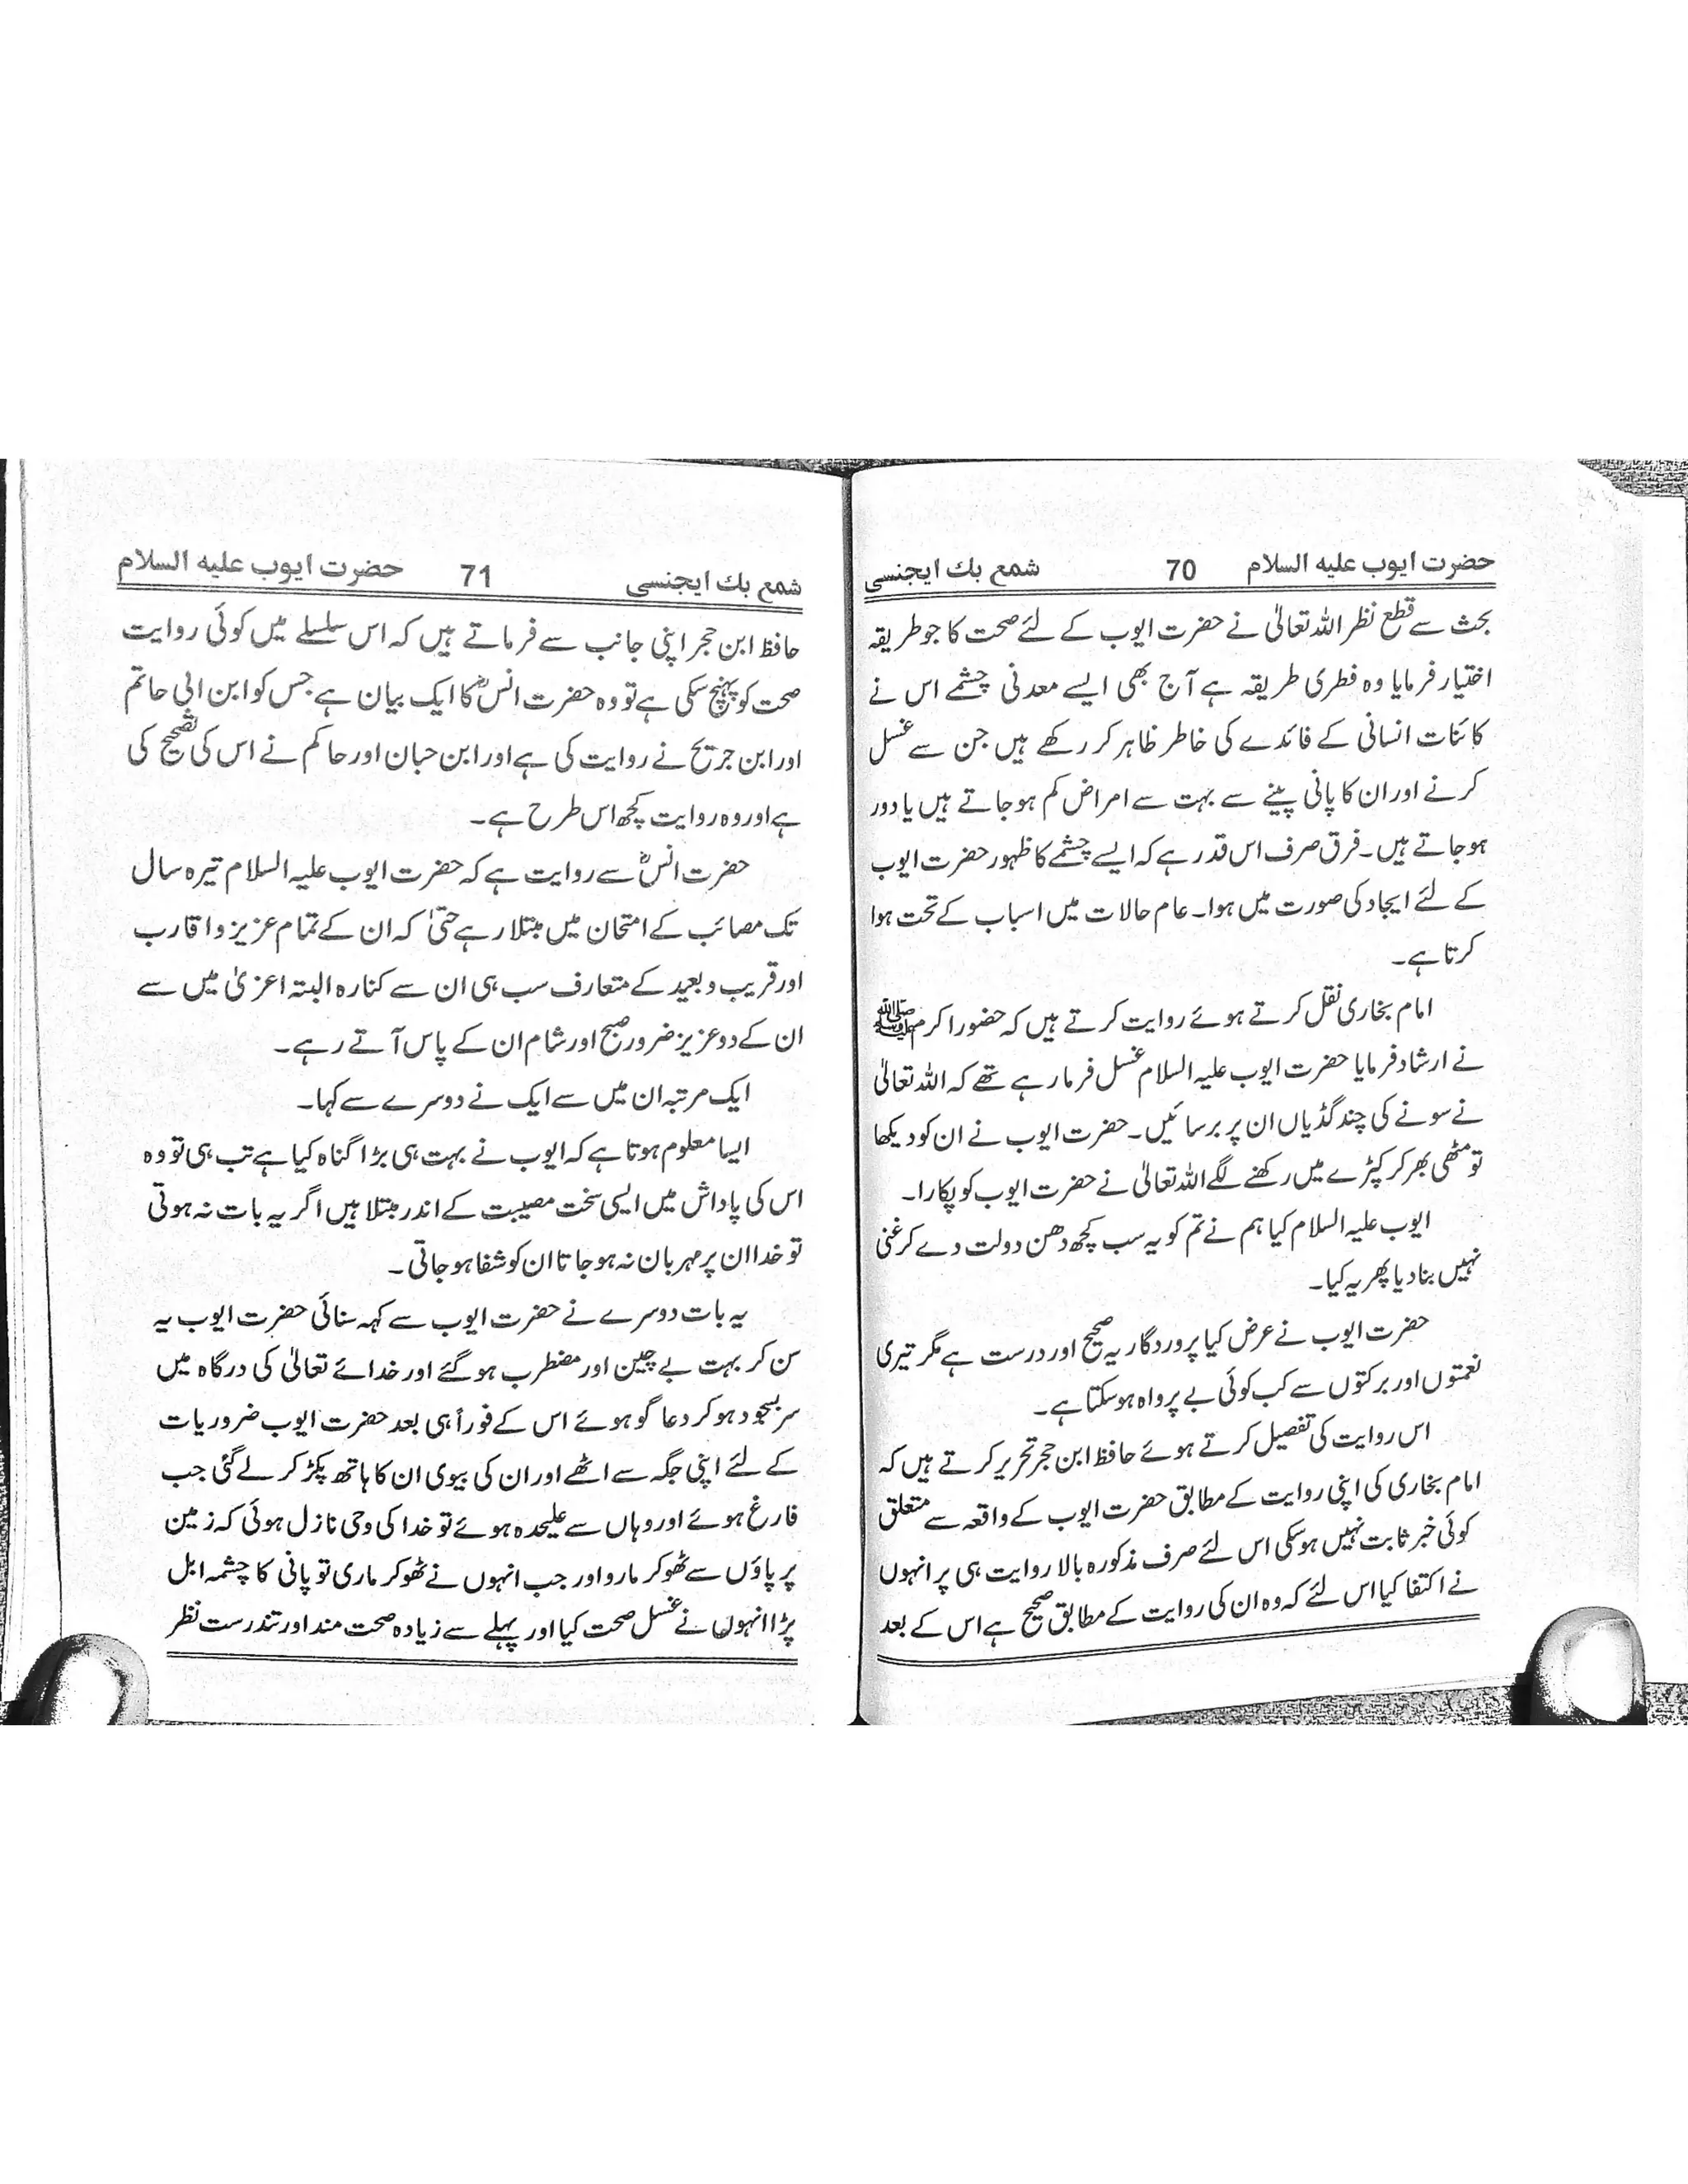 حضرت ایوب علیہ السلام 70 شمع بک ایجنسی
بحث سے قطع نظر اللہ تعالیٰ نے حضرت ایوب کے لئے صحت کا جو طریقہ
اختیار فرمایا وہ فطری طریقہ ہے آج بھی ایسے معدنی چشمے اس نے
کائنات انسانی کے فائدے کی خاطر ظاہر کر رکھے ہیں جن سے غسل
کرنے اور ان کا پانی پینے سے بہت سے امراض کم ہو جاتے ہیں یا دور
ہو جاتے ہیں۔ فرق صرف اس قدر ہے کہ ایسے چشمے کا ظہور حضرت ایوب
کے لئے ایجاد کی صورت میں ہوا۔ عام حالات میں اسباب کے تحت ہوا
کرتا ہے۔
امام بخاری نقل کرتے ہوئے روایت کرتے ہیں کہ حضور اکرم ﷺ
نے ارشاد فرمایا حضرت ایوب علیہ السلام غسل فرما رہے تھے کہ اللہ تعالیٰ
نے سونے کی چند گڈیاں ان پر برسائیں۔ حضرت ایوب نے ان کو دیکھا
تو مٹھی بھر کر کپڑے میں رکھنے لگے اللہ تعالیٰ نے حضرت ایوب کو پکارا۔
ایوب علیہ السلام کیا ہم نے تم کو یہ سب کچھ دھن دولت دے کر غنی
نہیں بنا دیا پھر یہ کیا۔
حضرت ایوب نے عرض کیا پروردگار یہ صحیح اور درست ہے مگر تیری
نعمتوں اور برکتوں سے کب کوئی بے پرواہ ہو سکتا ہے۔
اس روایت کی تفصیل کرتے ہوئے حافظ ابن حجر تحریر کرتے ہیں کہ
امام بخاری کی اپنی روایت کے مطابق حضرت ایوب کے واقعہ سے متعلق
کوئی خبر ثابت نہیں ہو سکی اس لئے صرف مذکورہ بالا روایت ہی پر انہوں
نے اکتفا کیا اس لئے کہ وہ ان کی روایت کے مطابق صحیح ہے اس کے بعد
شمع بک ایجنسی 71 حضرت ایوب علیہ السلام
حافظ ابن حجر اپنی جانب سے فرماتے ہیں کہ اس سلسلے میں کوئی روایت
صحت کو پہنچ سکی ہے تو وہ حضرت انسؓ کا ایک بیان ہے جس کو ابن ابی حاتم
اور ابن جریح نے روایت کی ہے اور ابن حبان اور حاکم نے اس کی تصحیح کی
ہے اور وہ روایت کچھ اس طرح ہے۔
حضرت انسؓ سے روایت ہے کہ حضرت ایوب علیہ السلام تیرہ سال
تک مصائب کے امتحان میں مبتلا رہے حتیٰ کہ ان کے تمام عزیز و اقارب
اور قریب و بعید کے متعارف سب ہی ان سے کنارہ البتہ اعزیٰ میں سے
ان کے دو عزیز ضرور صبح اور شام ان کے پاس آتے رہے۔
ایک مرتبہ ان میں سے ایک نے دوسرے سے کہا۔
ایسا معلوم ہوتا ہے کہ ایوب نے بہت ہی بڑا گناہ کیا ہے تب ہی تو وہ
اس کی پاداش میں ایسی سخت مصیبت کے اندر مبتلا ہیں اگر یہ بات نہ ہوتی
تو خدا ان پر مہربان نہ ہو جاتا ان کو شفا ہو جاتی۔
یہ بات دوسرے نے حضرت ایوب سے کہہ سنائی حضرت ایوب یہ
سن کر بہت بے چین اور مضطرب ہو گئے اور خدائے تعالیٰ کی درگاہ میں
سر بسجود ہو کر دعا گو ہوئے اس کے فوراً ہی بعد حضرت ایوب ضروریات
کے لئے اپنی جگہ سے اٹھے اور ان کی بیوی ان کا ہاتھ پکڑ کر لے گئی جب
فارغ ہوئے اور وہاں سے علیحدہ ہوئے تو خدا کی وحی نازل ہوئی کہ زمین
پر پاؤں سے ٹھوکر مارو اور جب انہوں نے ٹھوکر ماری تو پانی کا چشمہ ابل
پڑا انہوں نے غسل صحت کیا اور پہلے سے زیادہ صحت مند اور تندرست نظر